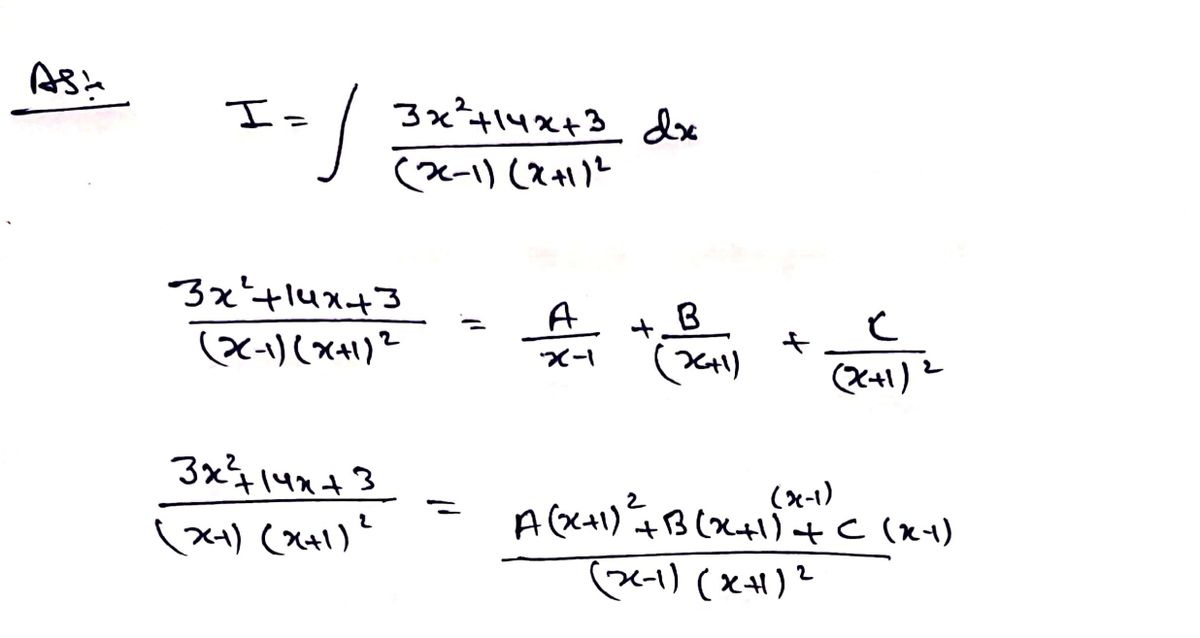 AS:-
I = ∫ (3x²+14x+3)/((x-1)(x+1)²) dx
(3x²+14x+3)/((x-1)(x+1)²) = A/(x-1) + B/(x+1) + C/(x+1)²
(3x²+14x+3)/((x-1)(x+1)²) = (A(x+1)²+B(x+1)(x-1)+C(x-1))/((x-1)(x+1)²)